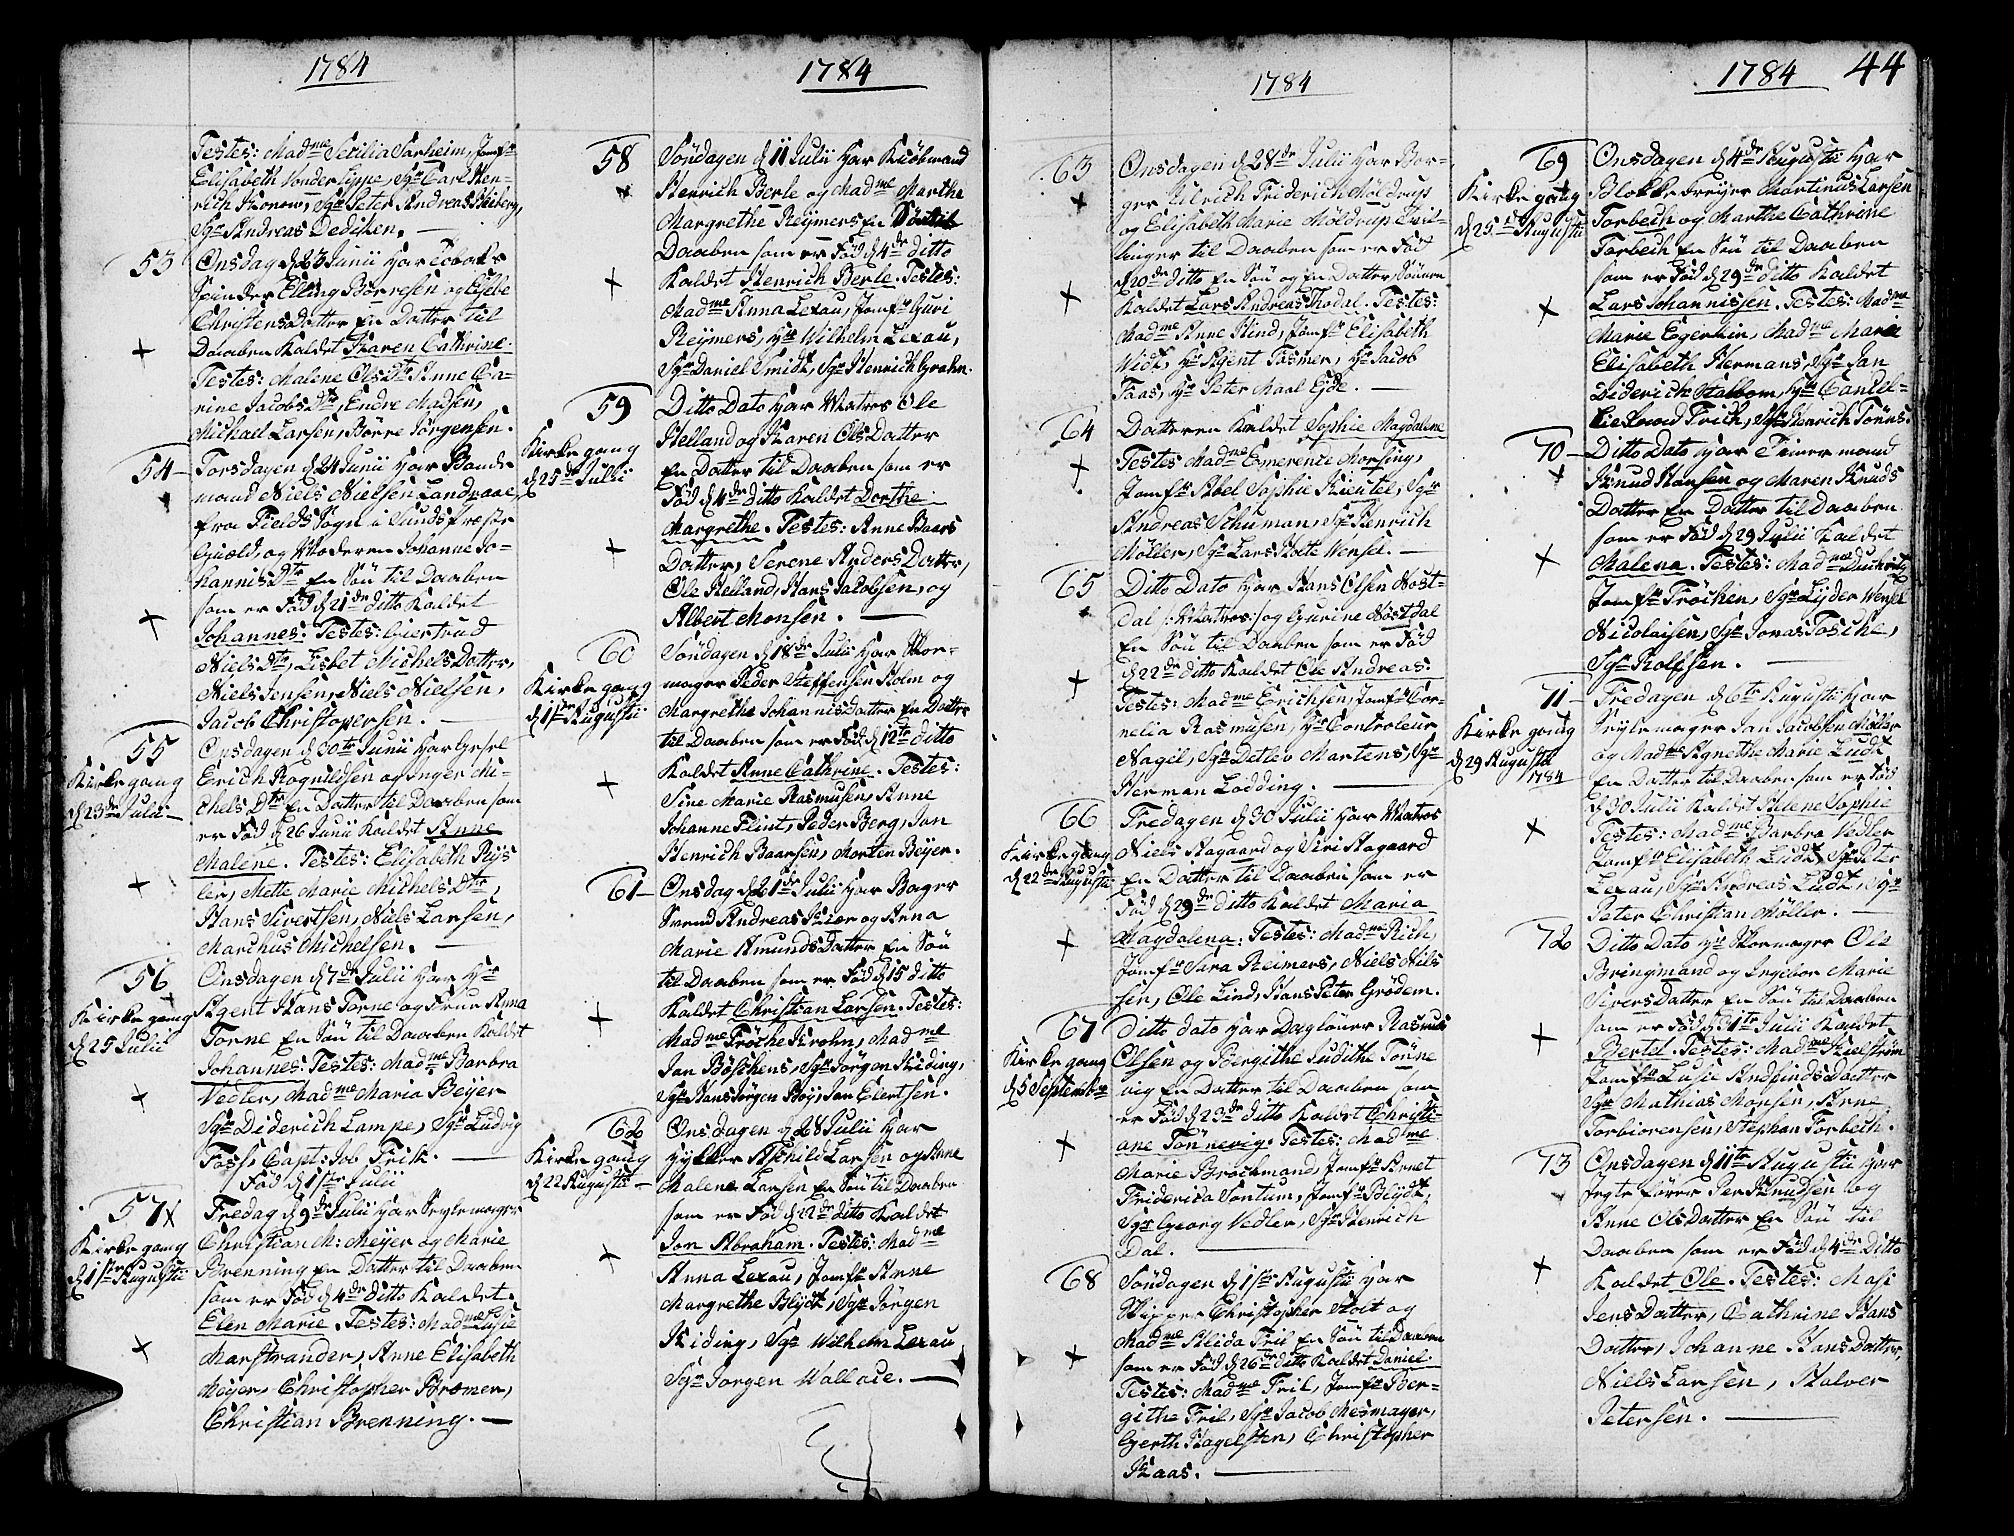 1784
Testes: Madme Secilia Sarheim, Jomfr
Elisabeth Vonder Lippe, Sgr Carl Hen-
rich Konow, Sgr Peter Andreas Heiberg,
Sgr Andreas Dediken.
53
Onsdag d 23 Junii har Tobaks
Spinder Elling Børresen og Gjebe
Christens Datter En Datter til
Daaben Kaldet Karen Cathrine.
Testes: Malene Ols Dtr Anne Ca-
rine Jacobs Dtr, Endre Madsen,
Michael Larsen, Børre Jørgensen.
54
Torsdagen d 24 Junii har Bonde
mand Niels Nielsen Landraae
fra Fields Sogn i Sunds Præste
Giæld, og Moderen Johanne Jo-
hannis Dtr En Søn til Daaben
som er Fød d 21de ditto Kaldet
Johannes. Testes: Giertrud
Niels Dtr, Lisbet Michels Datter,
Niels Jensen, Niels Nielsen,
Jacob Christopersen.
55
Kirke gang
d 23de Julii
Onsdagen d 30te Junii har Gesel
Erich Rognildsen og Inger Mi-
chels Dtr En Datter til Daaben som
er Fød d 26 Junii Kaldet Anne
Malene. Testes: Elisabeth Rijs
ler, Mette Marie Michels Dtr,
Hans Sivertsen, Niels Larsen,
Marchus Michelsen.
56
Kirke gang
d 25 Julii
Onsdagen d 7de Julii har Hr
Agent Hans Torne og Frue Anna
Torne En Søn til Daaben Kaldet
Johannes. Testes: Madme Barbra
Vedler, Madme Maria Beyer
Sgr Diderich Lampe, Sgr Ludvig
Foss, Capt: Job Frik.
Fød d 1ste Julii
57
Kirke gang
d 1ste Augustii
Fredag d 9de Julii har Seglemager
Christian M: Meyer og Marie
Brenning En Datter til Daaben
som er Fød d 4de ditto Kaldet.
Elen Marie. Testes: Madme Lusie
Marstrander, Anne Elisabeth
Meyer, Christopher Bremer,
Christian Brenning.
1784
58
Søndagen d 11 Julii har Kiøbmand
Henrich Berle og Madme Marthe
Margrethe Reymers En Søn til
Daaben som er Fød d 4de ditto
Kaldet Henrich Berle. Testes:
Madme Anna Lexau, Jomfr Guri
Reymers, Hr Wilhelm Lexau,
Sgr Daniel Smidt, Sgr Henrich Grahn.
59
Kirke gang
d 25de Julii
Ditto Dato har Matros Ole
Helland og Karen Ols Datter
En Datter til Daaben som er
Fød d 4de ditto Kaldet Dorthe
Margrethe. Testes: Anne Baars
Datter, Serene Anders Datter,
Ole Helland, Hans Jacobsen, og
Albert Monsen.
60
Kirke gang
d 1ste Augustii
Søndagen d 18de Julii har Skor-
mager Peder Steffensen Holm og
Margrethe Johannis Datter En Datter
til Daaben som er Fød d 12te ditto
Kaldet Anne Cathrine. Testes:
Sine Marie Rasmusen, Anne
Johanne Flint, Peder Berg, Jan
Henrich Baarsen, Morten Beyer.
61
Onsdag d 21de Julii har Bager
Svend Andreas Kier og Anna
Marie Amunds Datter En Søn
til Daaben som er Fød d 15 ditto
Kaldet Christian Larsen. Testes:
Madme Frøche Krohn, Madme
Jan Bøschens, Sgr Jørgen Kiding,
Sgr Hans Jørgen Boy, Jan Elertsen.
62
Kirke gang
d 22 Augustii
Onsdagen d 28 Julii har
Jykter Askild Larsen og Anne
Malene Larsen En Søn til Daaben
som er Fød d 22de ditto Kaldet
Jon Abraham. Testes: Madme
Anna Lexau, Jomfr Anne
Margrethe Blydt, Sgr Jørgen
Kiding, Sgr Wilhelm Lexau
Sgr Jørgen Wallace.
1784
63
Onsdagen d 28de Julii har Bor-
ger Ulrich Friderich Møldrup
og Elisabeth Marie Møldrups Tvil-
linger til Daaben som er Fød
d 20de ditto En Søn og En Datter, Sønnen
Kaldet Lars Andreas Kodal. Testes:
Madme Anne Hind, Jomfr Elisabeth
Widt, Hr Agent Fasmer, Hr Jacob
Faas, Hr Peter Kaal Eyde.
64
Datteren Kaldet Sophie Magdalene
Testes Madme Emerente Morsing,
Jomfr Abel Sophie Kieutel, Sgr
Andreas Schuman, Sgr Henrich
Möller, Sgr Lars Holte Wensel.
65
Ditto Dato har Hans Olsen Nøst-
dal /: Matros :/ og Gurine Nøstdal
En Søn til Daaben som er Fød
d 22de ditto Kaldet Ole Andreas:
Testes: Madme Erichsen, Jomfr Cor-
nelia Rasmusen, Hr Controleur
Nagel, Sgr Detlev Martens, Sgr
Herman Lodding.
66
Kirke gang
d 22de Augustii
Fredagen d 30 Julii har Matros
Niels Aagaard og Siri Aagaard
En Datter til Daaben som er
Fød d 29de ditto Kaldet Maria
Magdalena: Testes: Madme Rich,
Jomfr Sara Reimers, Niels Niel
sen, Ole Lind, Hans Peter Grødem.
67
Kirke gang
d 5 September
Ditto dato har Dagløner Rasmus
Olsen og Bergithe Judithe Tønne
vig En Datter til Daaben som
er Fød d 23de ditto Kaldet Christi-
ane Tønnevig. Testes: Madme
Marie Brochmand, Jomfr Annet
Friderica Sontum, Jomfr Blydt,
Sgr Georg Vedler, Sgr Henrich
Dal.
68
Søndagen d 1ste Augustii har
Skipper Christopher Stoit og
Madme Alida Fril En Søn til Daaben
som er Fød d 26de ditto Kaldet Daniel.
Testes: Madme Fril, Jomfr Ber-
githe Fril, Sgr Jacob Mesmayer,
Gerth Hagelsten, Christopher
Kaas.
1784
44
69
Kirke gang
d 25 Augustii
Onsdagen d 4de Augustii har
Blokke Dreyer Martinus Larsen
Torbech og Marthe Cathrine
Torbech En Søn til Daaben
som er Fød d 29de ditto Kaldet
Lars Johannissen. Testes: Madme
Marie Egerkin, Madme Marie
Elisabeth Hermans, Sgr Jan
Diderich Stalbom, Sgr Cancel-
lie Frich, Sgr Henrich Tønns.
70
Ditto Dato har Timer mand
Knud Hansen og Maren Knuds
Datter En Datter til Daaben
som er Fød d 29 Julii Kaldet
Malena. Testes: Madme Duchvitz
Jomfr Frøchen, Sgr Lyder Wensel
Nicolaisen, Sgr Jonas Tosche,
Sgr Rolfsen.
71
Kirke gang
d 29 Augusti
1784
Fredagen d 6te Augustii har
Seyle mager Jan Jacobsen Møller
og Madme Agnethe Marie Ludt
En Datter til Daaben som er Fød
d 30 Julii Kaldet Helene Sophie
Testes: Madme Barbra Vedler
Jomfr Elisabeth Ludt, Sgr Peter
Lexau, Sgr Andreas Ludt, Sgr
Peter Christian Møller.
72
Ditto Dato Hr Skormager Ole
Bringmand og Ingebor Marie
Sivers Datter En Søn til Daaben
som er Fød d 31te Julii Kaldet
Bertel. Testes: Madme Kielstrøm
Jomfr Lusie Andfinds Datter
Sgr Mathias Monsen, Arne
Torbiørensen, Stephan Torbech.
73
Onsdagen d 11te Augustii har
Jegte fører Per Knudsen og
Anne Ols Datter En Søn til
Daaben som er Fød d 4de Ditto
Kaldet Ole. Testes: Masi
Jens Datter, Cathrine Hans
Datter, Johanne Hans Datter,
Niels Larsen, Halver
Petersen.